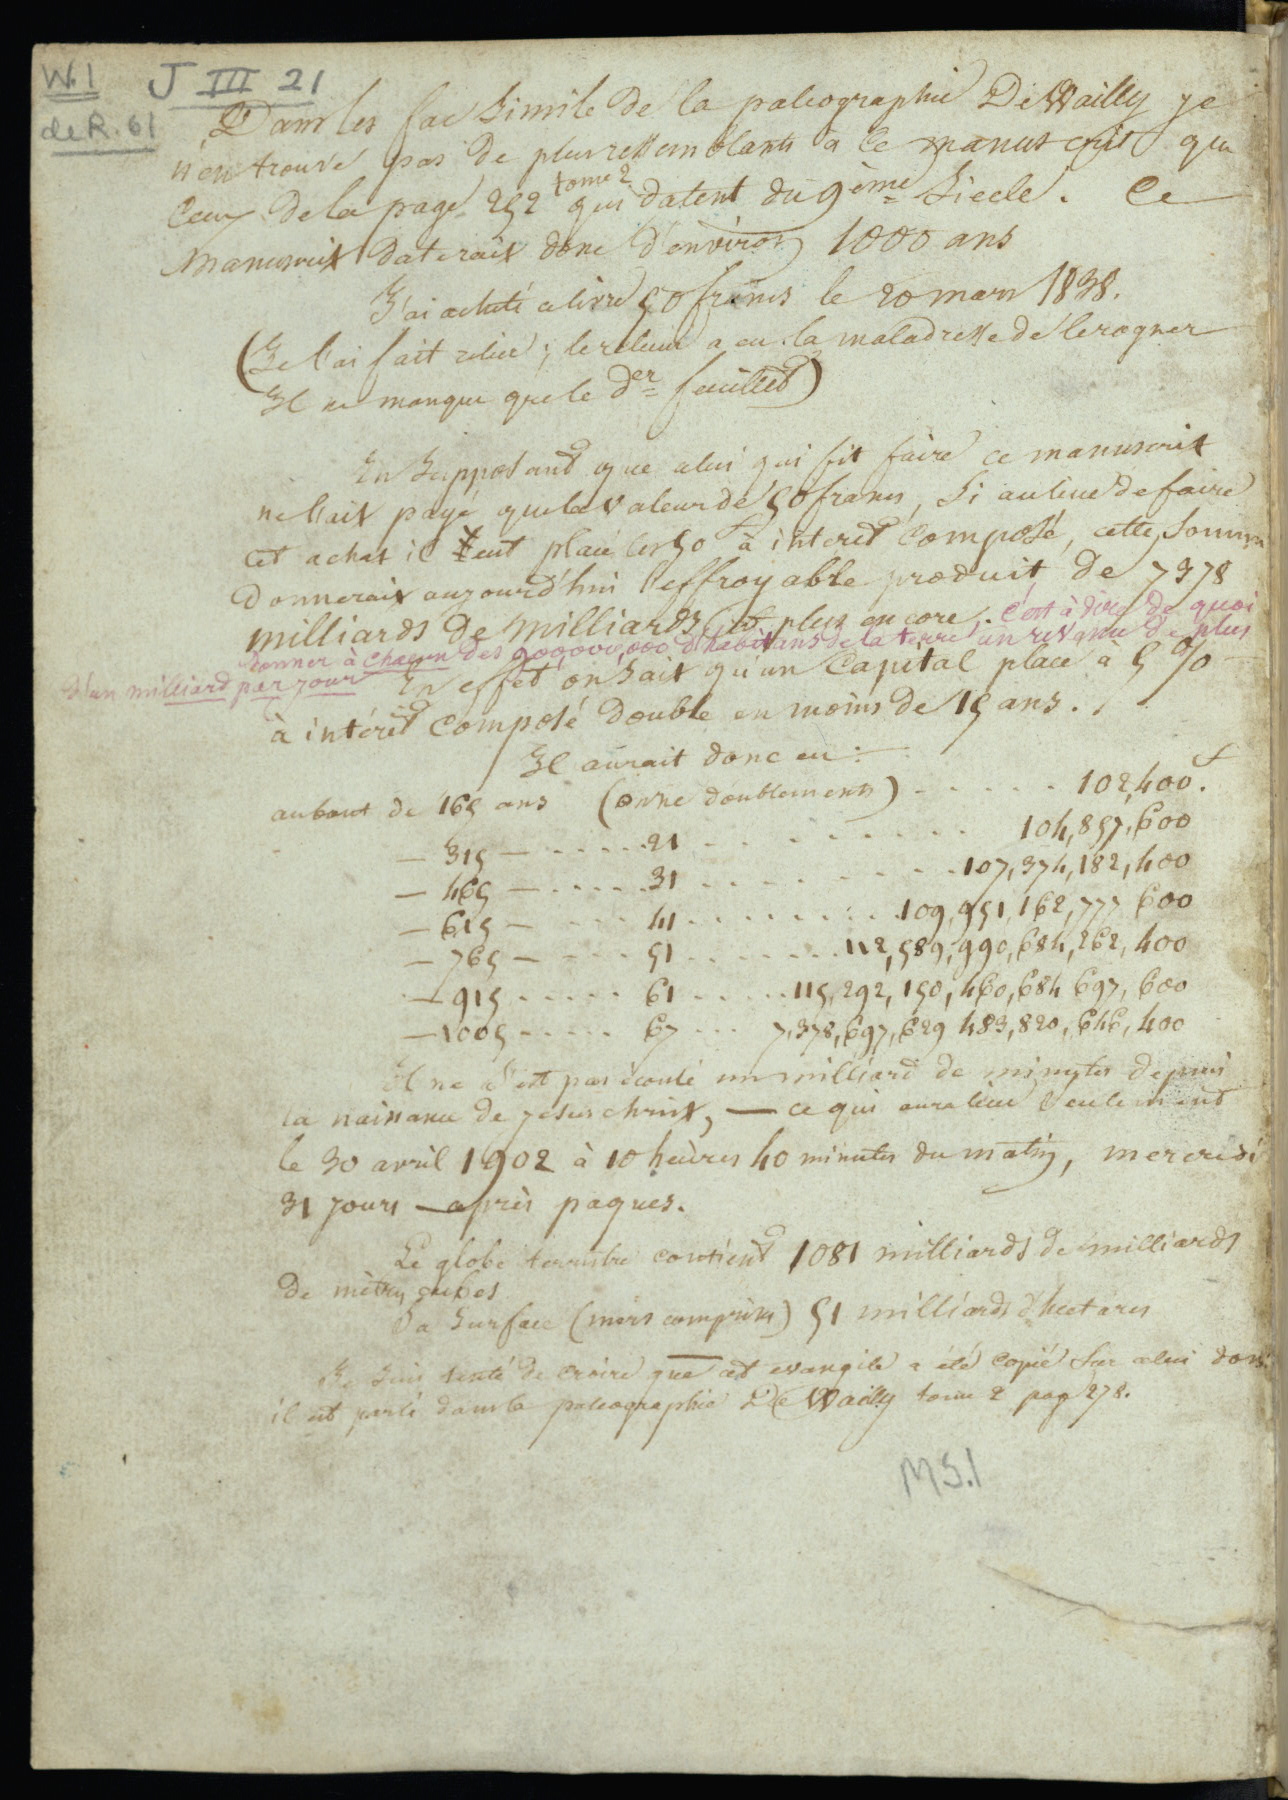 W.1 J III 21
de R. 61
Dans les fac simile de la paleographie De Wailly je
n'en trouve pas de plus ressemblants à ce manuscrit que
ceux de la page 252 tome 2 qui datent du 9ème siecle. Ce
manuscrit daterait donc d'environ 1000 ans
J'ai acheté ce livre 50 francs le 20 mars 1838.
(Je l'ai fait relier ; le relieur a eu la maladresse de le rogner
Il ne manque que le der feuillet)
En supposant que celui qui fit faire ce manuscrit
ne l'ait payé que la valeur de 50 francs, si au lieu de faire
cet achat il eut placé les 50 f à interet composé, cette somme
donnerait aujourd'hui l'effroyable produit de 7378
milliards de milliards et plus encore, c'est à dire de quoi
donner à chacun des 900,000,000 d'habitans de la terre un revenu de plus
d'un milliard par jour
En effet on sait qu'un capital placé à 5 %
à intéret composé double en moins de 15 ans.
Il aurait donc eu :
au bout de 165 ans (onze doublements) . . . . . 102,400 f.
— 315 — . . . . . 21 . . . . . . . . 104,857,600
— 465 — . . . . . 31 . . . . . . . . 107,374,182,400
— 615 — . . . . 41 . . . . . . . . 109,951,162,777 600
— 765 — . . . . 51 . . . . . . . 112,589,990,684,262,400
— 915 . . . . . 61 . . . . . 115,292,150,460,684 697,600
— 1005 . . . . . 67 . . . 7,378,697,629 483,820,646,400
Il ne s'est pas écoulé un milliard de minutes depuis
la naissance de jesus christ, — ce qui aura lieu seulement
le 30 avril 1902 à 10 heures 40 minutes du matin, mercredi
31 jours après paques.
Le globe terrestre contient 1081 milliards de milliards
de mètres cubes
Sa surface (mers comprises) 51 milliards d'hectares
Je suis tenté de croire que cet evangile a été copié sur celui dont
il est parlé dans la paleographie De Wailly tome 2 pag 278.
MS.1